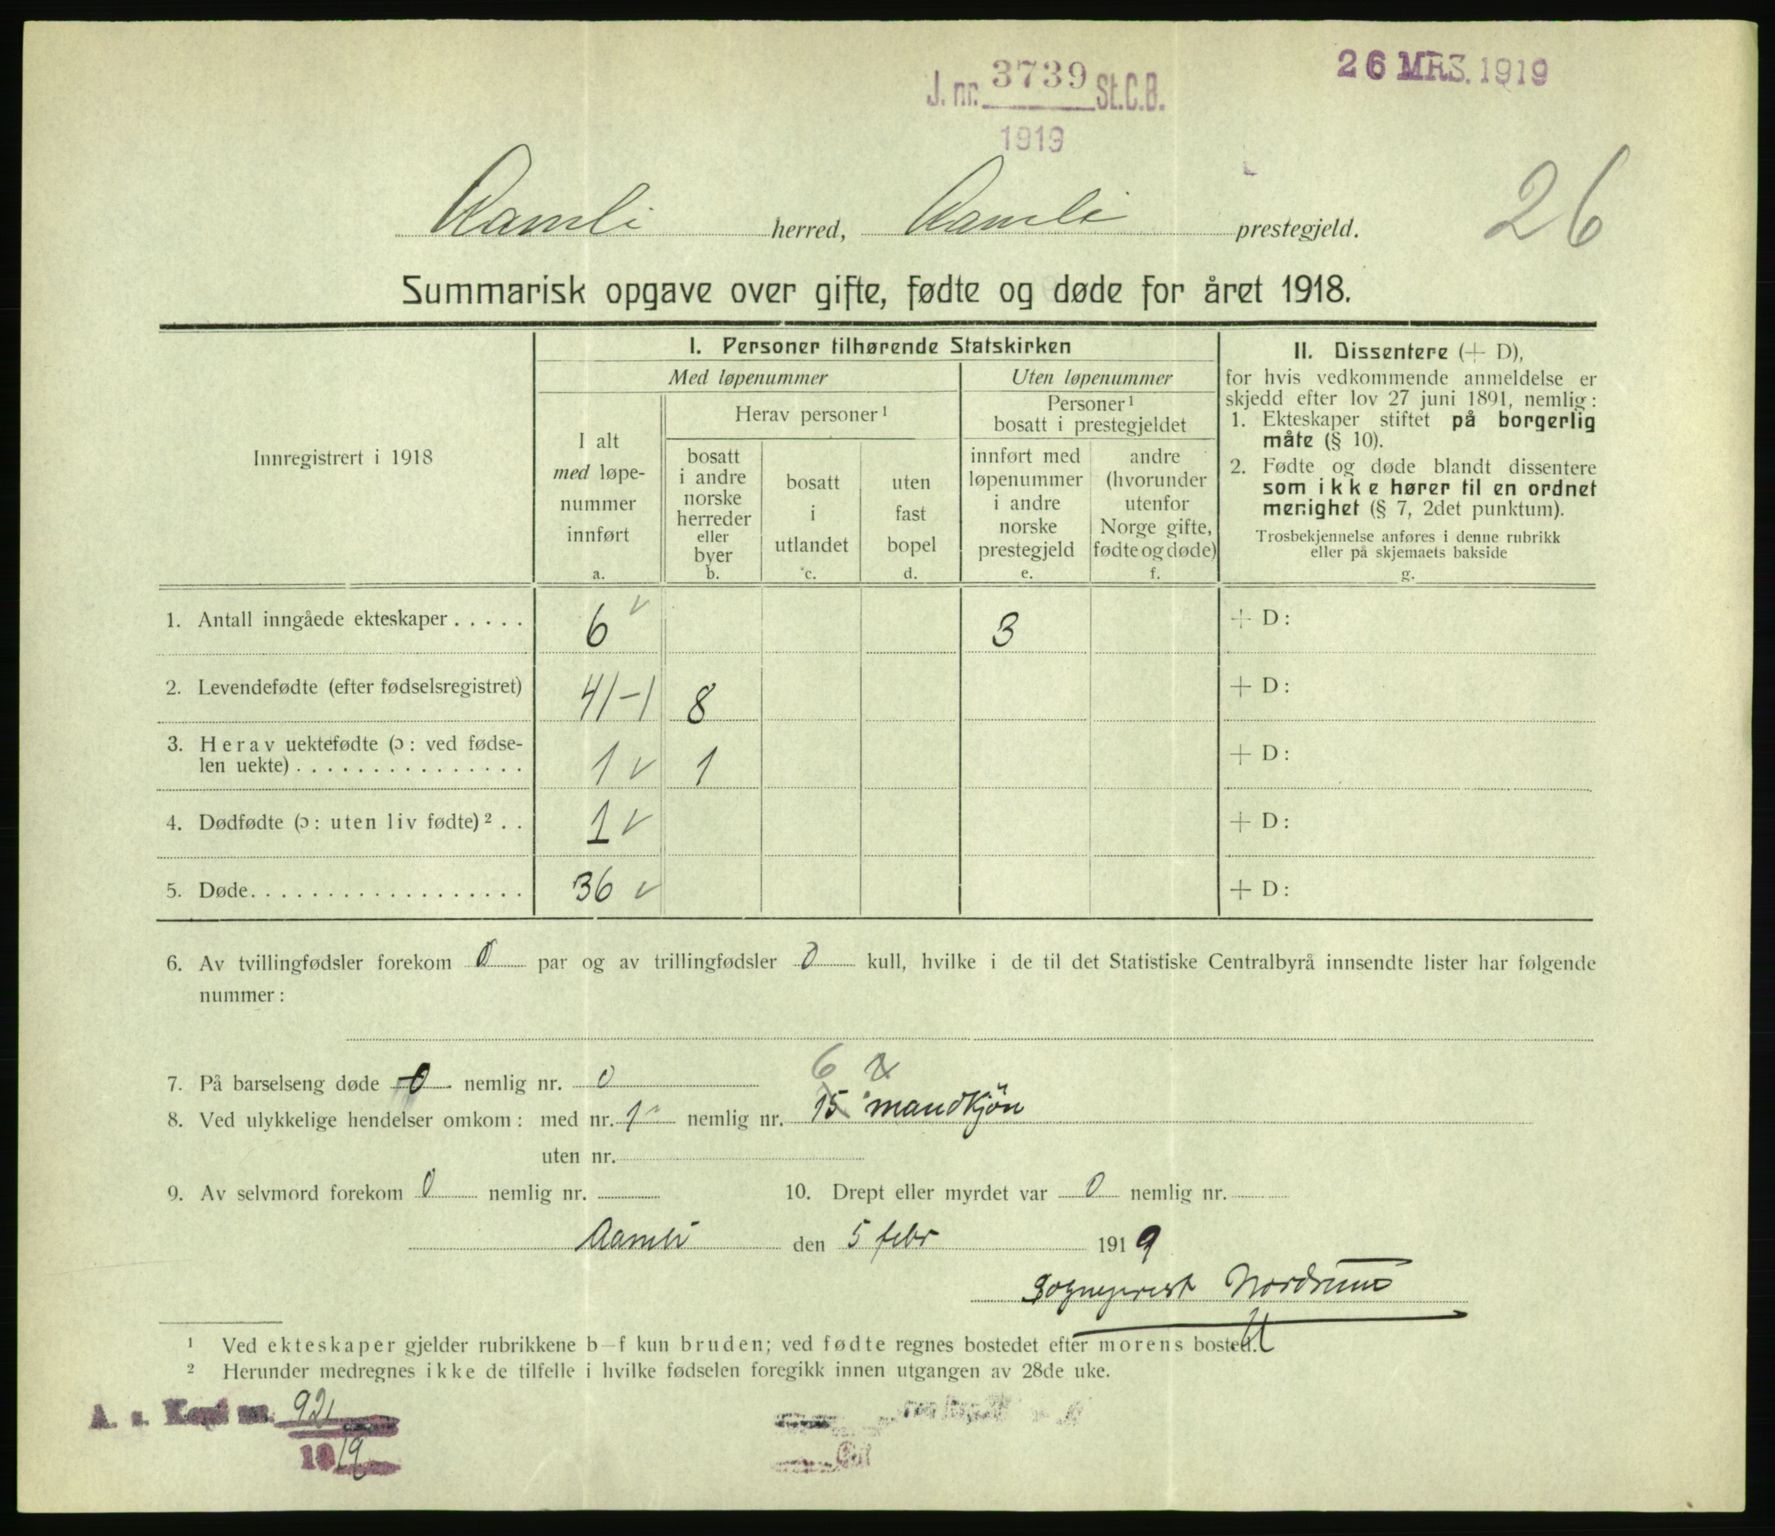 26 MRS. 1919
J. nr. 3739 St.C.B.
1919
26
Aamli herred, Aamli prestegjeld.
Summarisk opgave over gifte, fødte og døde for året 1918.
Innregistrert i 1918
I. Personer tilhørende Statskirken
Med løpenummer
Uten løpenummer
I alt
med løpe-
nummer
innført
a.
Herav personer¹
bosatt
i andre
norske
herreder
eller
byer
b.
bosatt
i
utlandet
c.
uten
fast
bopel
d.
Personer¹
bosatt i prestegjeldet
innført med
løpenummer
i andre
norske
prestegjeld
e.
andre
(hvorunder
utenfor
Norge gifte,
fødte og døde)
f.
II. Dissentere (+ D),
for hvis vedkommende anmeldelse er
skjedd efter lov 27 juni 1891, nemlig:
1. Ekteskaper stiftet på borgerlig
måte (§ 10).
2. Fødte og døde blandt dissentere
som ikke hører til en ordnet
menighet (§ 7, 2det punktum).
Trosbekjennelse anføres i denne rubrikk
eller på skjemaets bakside
g.
1. Antall inngåede ekteskaper..... 6 ✓ 3 + D:
2. Levendefødte (efter fødselsregistret) 41-1 8 + D:
3. Herav uektefødte (ɔ: ved fødse-
len uekte)............... 1 ✓ 1 + D:
4. Dødfødte (ɔ: uten liv fødte)².. 1 ✓ + D:
5. Døde.................. 36 ✓ + D:
6. Av tvillingfødsler forekom 0 par og av trillingfødsler 0 kull, hvilke i de til det Statistiske Centralbyrå innsendte lister har følgende
nummer:
6
7. På barselseng døde 0 nemlig nr. 0
8. Ved ulykkelige hendelser omkom: med nr. 1 nemlig nr. 15 mandkjön
uten nr.
9. Av selvmord forekom 0 nemlig nr. 10. Drept eller myrdet var 0 nemlig nr.
Aamli den 5 febr 1919
Sogneprest Nordrum
¹ Ved ekteskaper gjelder rubrikkene b–f kun bruden; ved fødte regnes bostedet efter morens bosted.
² Herunder medregnes ikke de tilfelle i hvilke fødselen foregikk innen utgangen av 28de uke.
921
1919